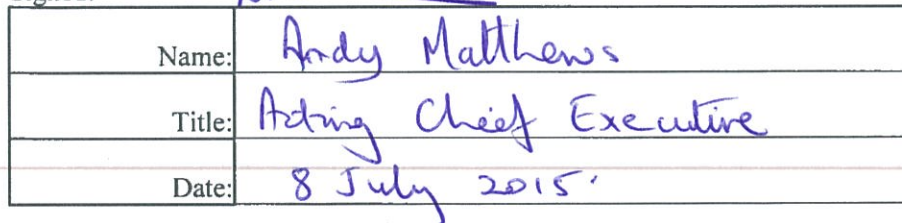 Name: Andy Matthews
Title: Acting Chief Executive
Date: 8 July 2015.